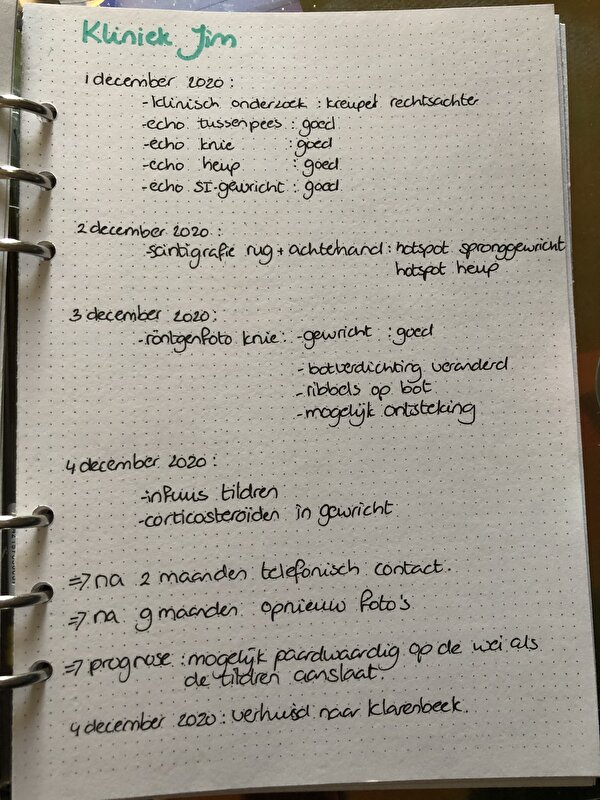 Kliniek Jim
1 december 2020:
-klinisch onderzoek : kreupel rechtsachter
-echo tussenpees : goed
-echo knie : goed
-echo heup : goed
-echo SI-gewricht : goed
2 december 2020:
-scintigrafie rug + achterhand : hotspot spronggewricht
hotspot heup
3 december 2020:
-röntgenfoto knie: -gewricht : goed
-botverdichting veranderd
-ribbels op bot
-mogelijk ontsteking
4 december 2020:
-infuus tildren
-corticosteroïden in gewricht
=> na 2 maanden telefonisch contact.
=> na 9 maanden opnieuw foto's
=> prognose : mogelijk paardwaardig op de wei als
de tildren aanslaat.
4 december 2020 : verhuisd naar Klarenbeek.